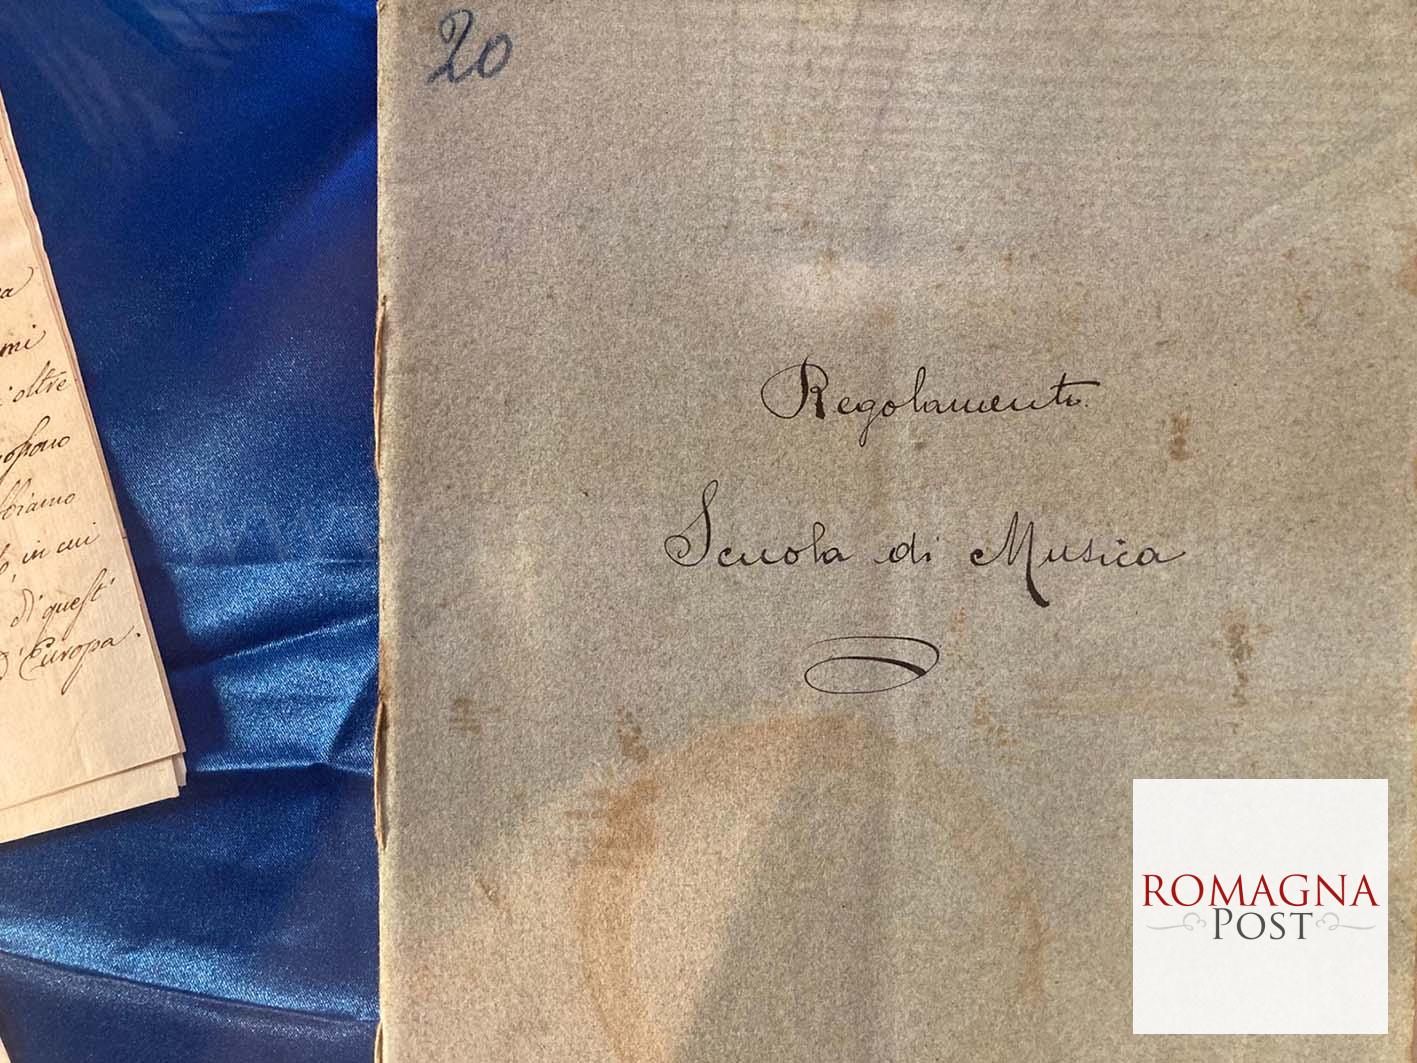 20
mi
oltre
in cui
di quest'
d'Europa.
Regolamento
Scuola di Musica
ROMAGNA
POST